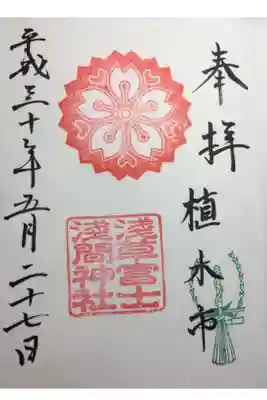 奉拝 植木市
淺草富士
淺間神社
平成三十年五月二十七日